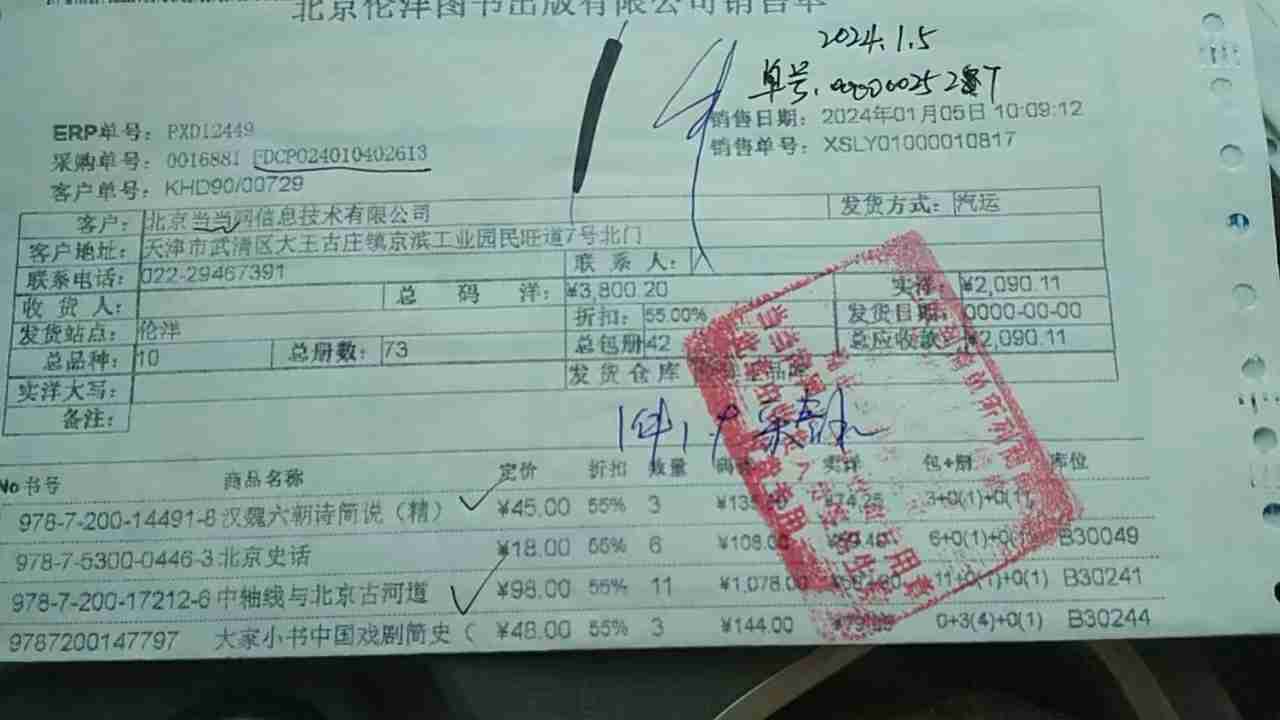 北京伦洋图书出版有限公司销售单
2024.1.5
单号:
ERP单号: PXD12449
销售日期: 2024年01月05日 10:09:12
采购单号: 0016881 FDCP024010402613
销售单号: XSLY01000010817
客户单号: KHD90/00729
客户: 北京当当网信息技术有限公司 发货方式: 汽运
客户地址: 天津市武清区大王古庄镇京滨工业园民旺道7号北门
联系电话: 022-29467391 联系人:
收货人: 总码洋: ¥3,800.20 实洋: ¥2,090.11
发货站点: 伦洋 折扣: 55.00% 发货日期: 0000-00-00
总品种: 10 总册数: 73 总包册 42 总应收款 ¥2,090.11
实洋大写: 发货仓库
备注:
No 书号 商品名称 定价 折扣 数量 码洋 实洋 包+册 库位
978-7-200-14491-8 汉魏六朝诗简说（精） ¥45.00 55% 3 ¥74.25 3+0(1)+0(1)
978-7-5300-0446-3 北京史话 ¥18.00 55% 6 ¥108.00 6+0(1)+0(1) B30049
978-7-200-17212-6 中轴线与北京古河道 ¥98.00 55% 11 ¥1,078.00 11+0(1)+0(1) B30241
9787200147797 大家小书中国戏剧简史（ ¥48.00 55% 3 ¥144.00 0+3(4)+0(1) B30244